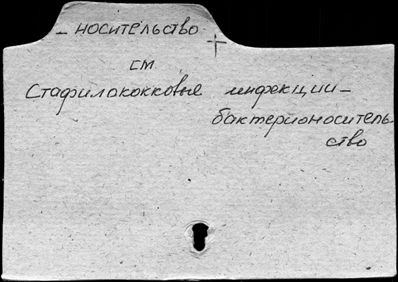 – носительство
см
Стафилококковые инфекции –
бактерионоситель
ство